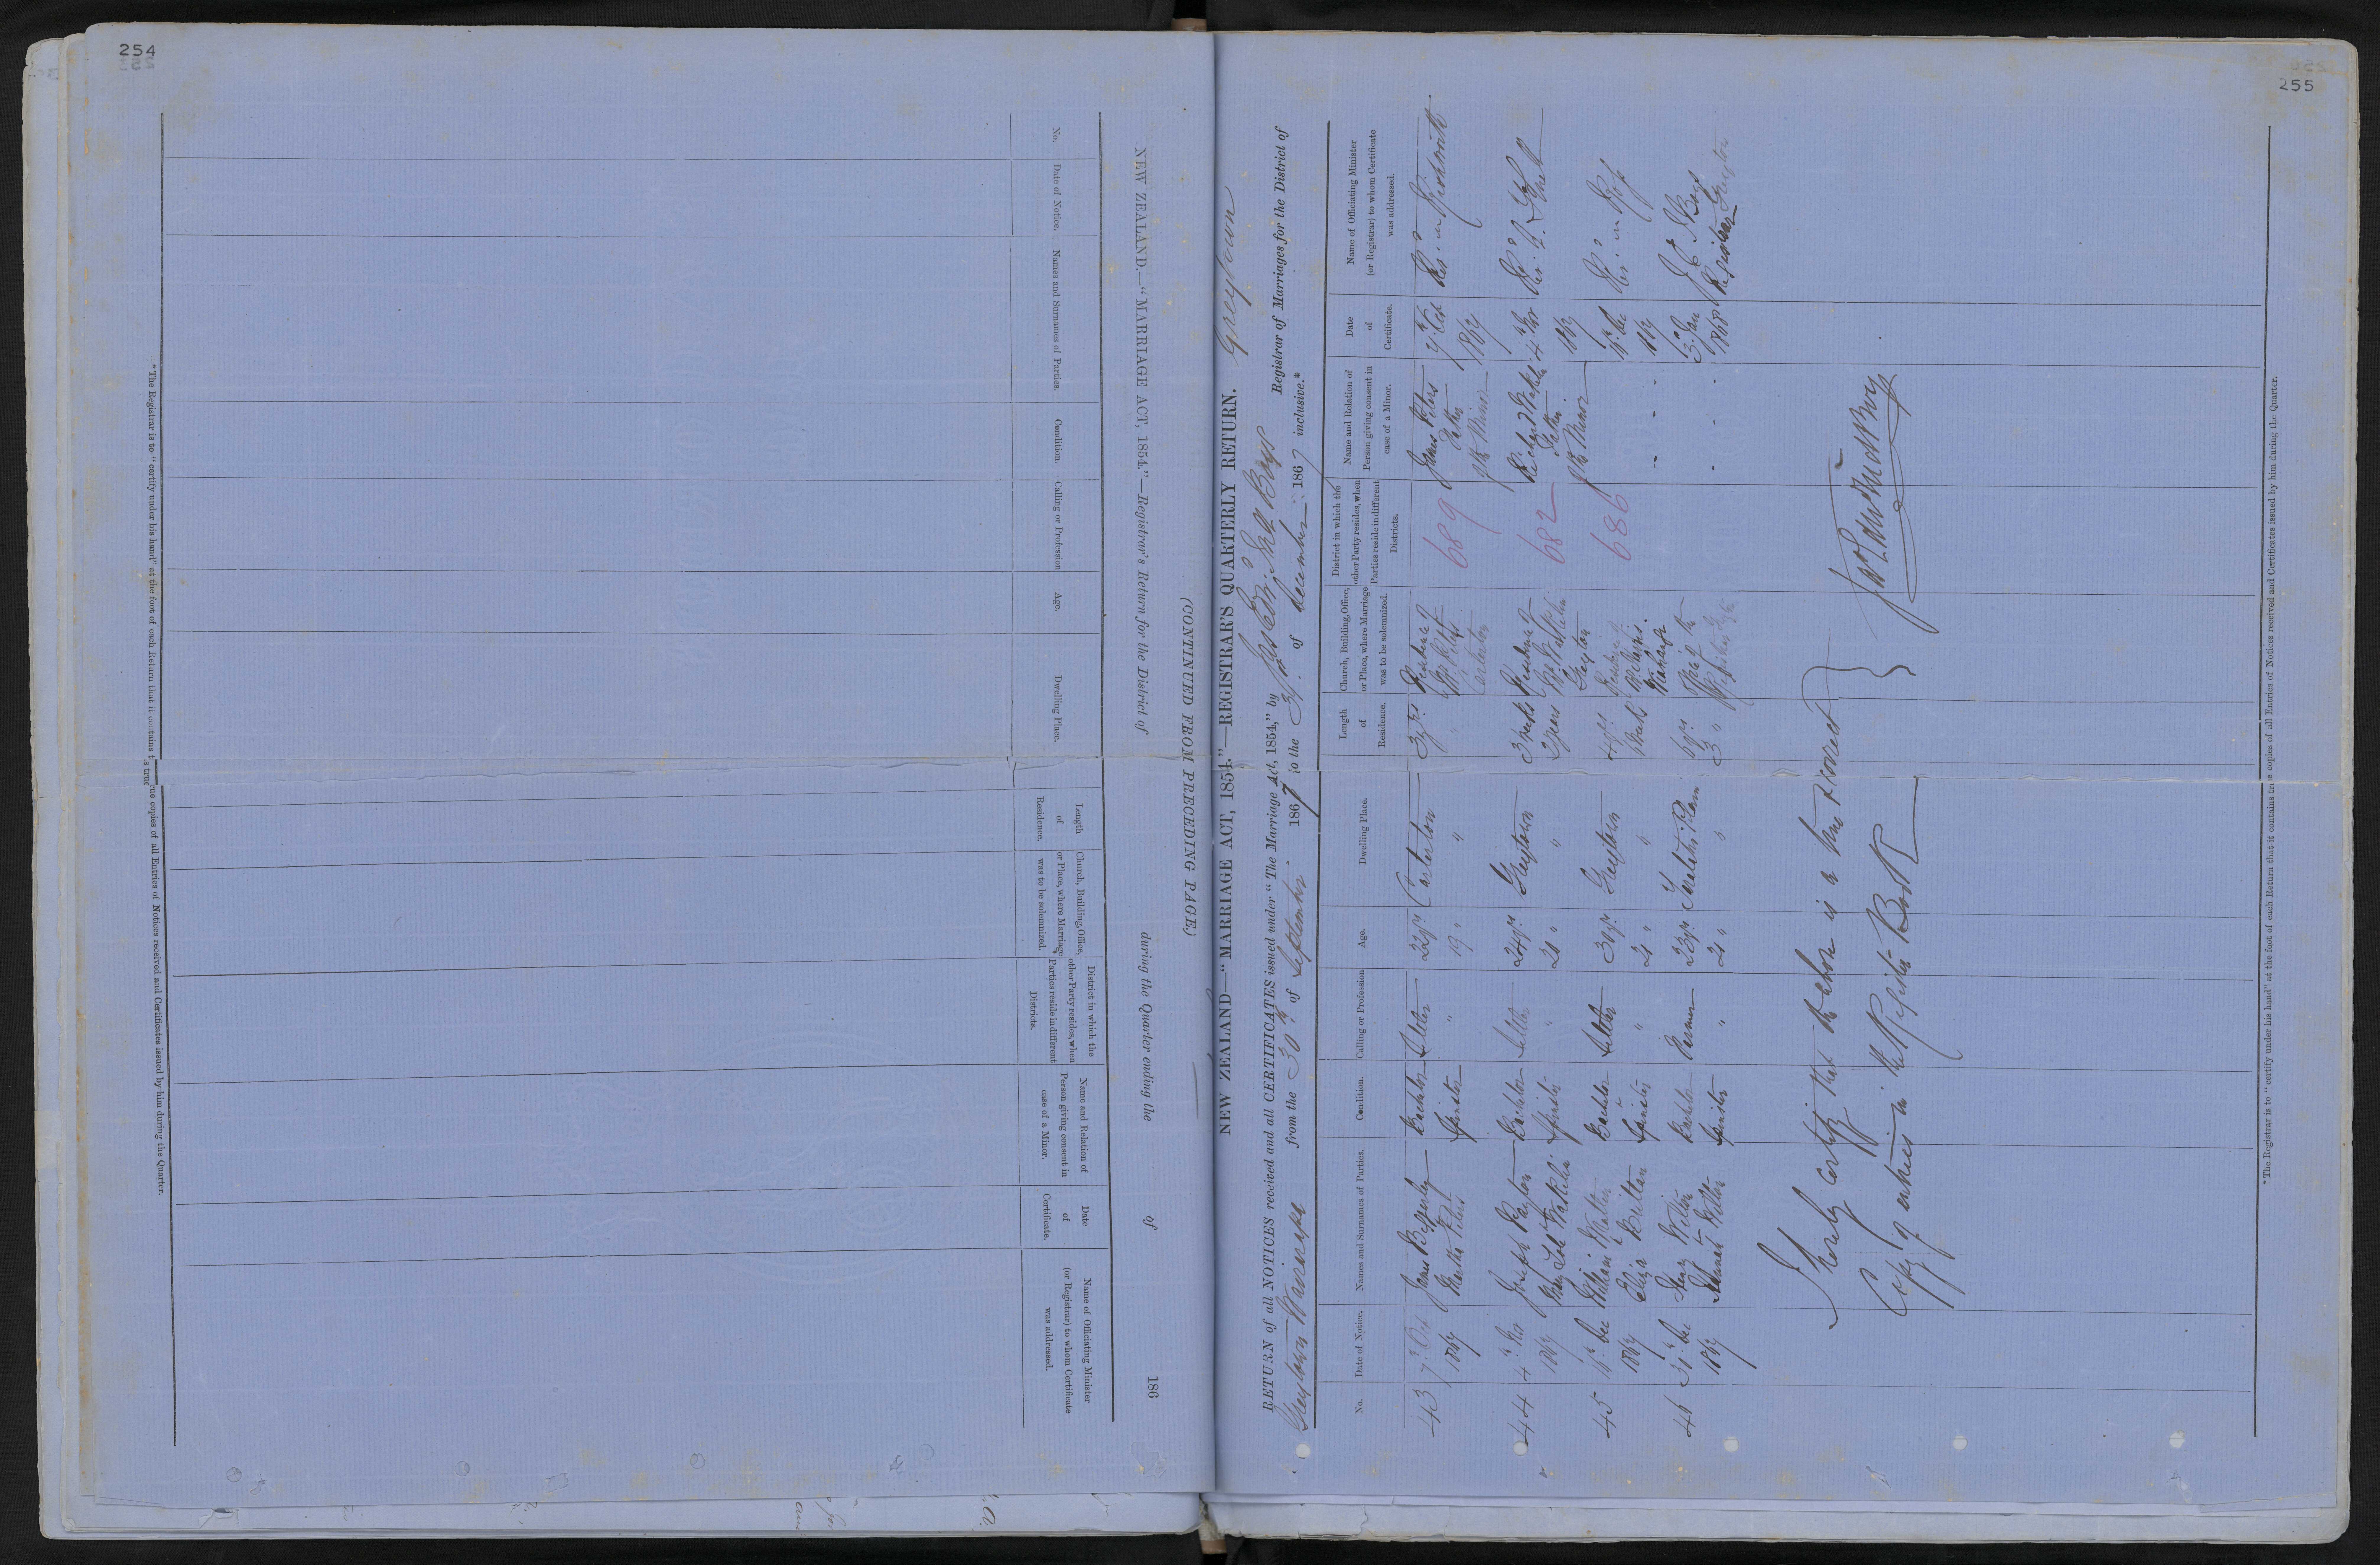 254
NEW ZEALAND.—"MARRIAGE ACT, 1854."—Registrar's Return for the District of during the Quarter ending the of 186
(CONTINUED FROM PRECEDING PAGE.)
No.
Date of Notice.
Names and Surnames of Parties.
Condition.
Calling or Profession
Age.
Dwelling Place.
Length
of
Residence.
Church, Building, Office,
or Place, where Marriage
was to be solemnized.
District in which the
other Party resides, when
Parties reside in different
Districts.
Name and Relation of
Person giving consent in
case of a Minor.
Date
of
Certificate.
Name of Officiating Minister
(or Registrar) to whom Certificate
was addressed.
* The Registrar is to "certify under his hand" at the foot of each Return that it contains true copies of all Entries of Notices received and Certificates issued by him during the Quarter.
255
NEW ZEALAND—"MARRIAGE ACT, 1854."—REGISTRAR'S QUARTERLY RETURN. Greytown
RETURN of all NOTICES received and all CERTIFICATES issued under "The Marriage Act, 1854," by Boys Registrar of Marriages for the District of
Greytown Wairarapa from the 30th of September 1867 to the 31st of December 1867 inclusive.*
No.
Date of Notice.
Names and Surnames of Parties.
Condition.
Calling or Profession
Age.
Dwelling Place.
Length
of
Residence.
Church, Building, Office,
or Place, where Marriage
was to be solemnized.
District in which the
other Party resides, when
Parties reside in different
Districts.
Name and Relation of
Person giving consent in
case of a Minor.
Date
of
Certificate.
Name of Officiating Minister
(or Registrar) to whom Certificate
was addressed.
43 7th Oct James Bachelor Settler 22 yrs Carterton 3 yrs Residence of 689 James Peters 7th Oct Revd. Mr
1867 Martha Peters Spinster " 19 " " " Carterton Father 1867
of the Minor
44 4th Nov Joseph Payton Bachelor Settler 24 yrs Greytown 3 weeks Residence of 682 Richard Wakelin 4th Nov Revd.
1867 Wakelin Spinster " 20 " " 2 years Mr Wakelin Greytown Father of the Minor 1867
45 Dec William Bachelor Settler 30 yrs Greytown 4 yrs Residence 686 - Dec Revd. Mr Ross
1867 Eliza Spinster " 21 " " - 1867
46 31st Dec Henry Bachelor Farmer 23 yrs Taratahi Plain 6 yrs Office of the - 3rd Jan Boys
1867 Hannah Spinster " 21 " " 3 " - 1868 Registrar Greytown
I hereby certify that the above is a true & correct
Copy of entries in the Register Book
* The Registrar is to "certify under his hand" at the foot of each Return that it contains true copies of all Entries of Notices received and Certificates issued by him during the Quarter.